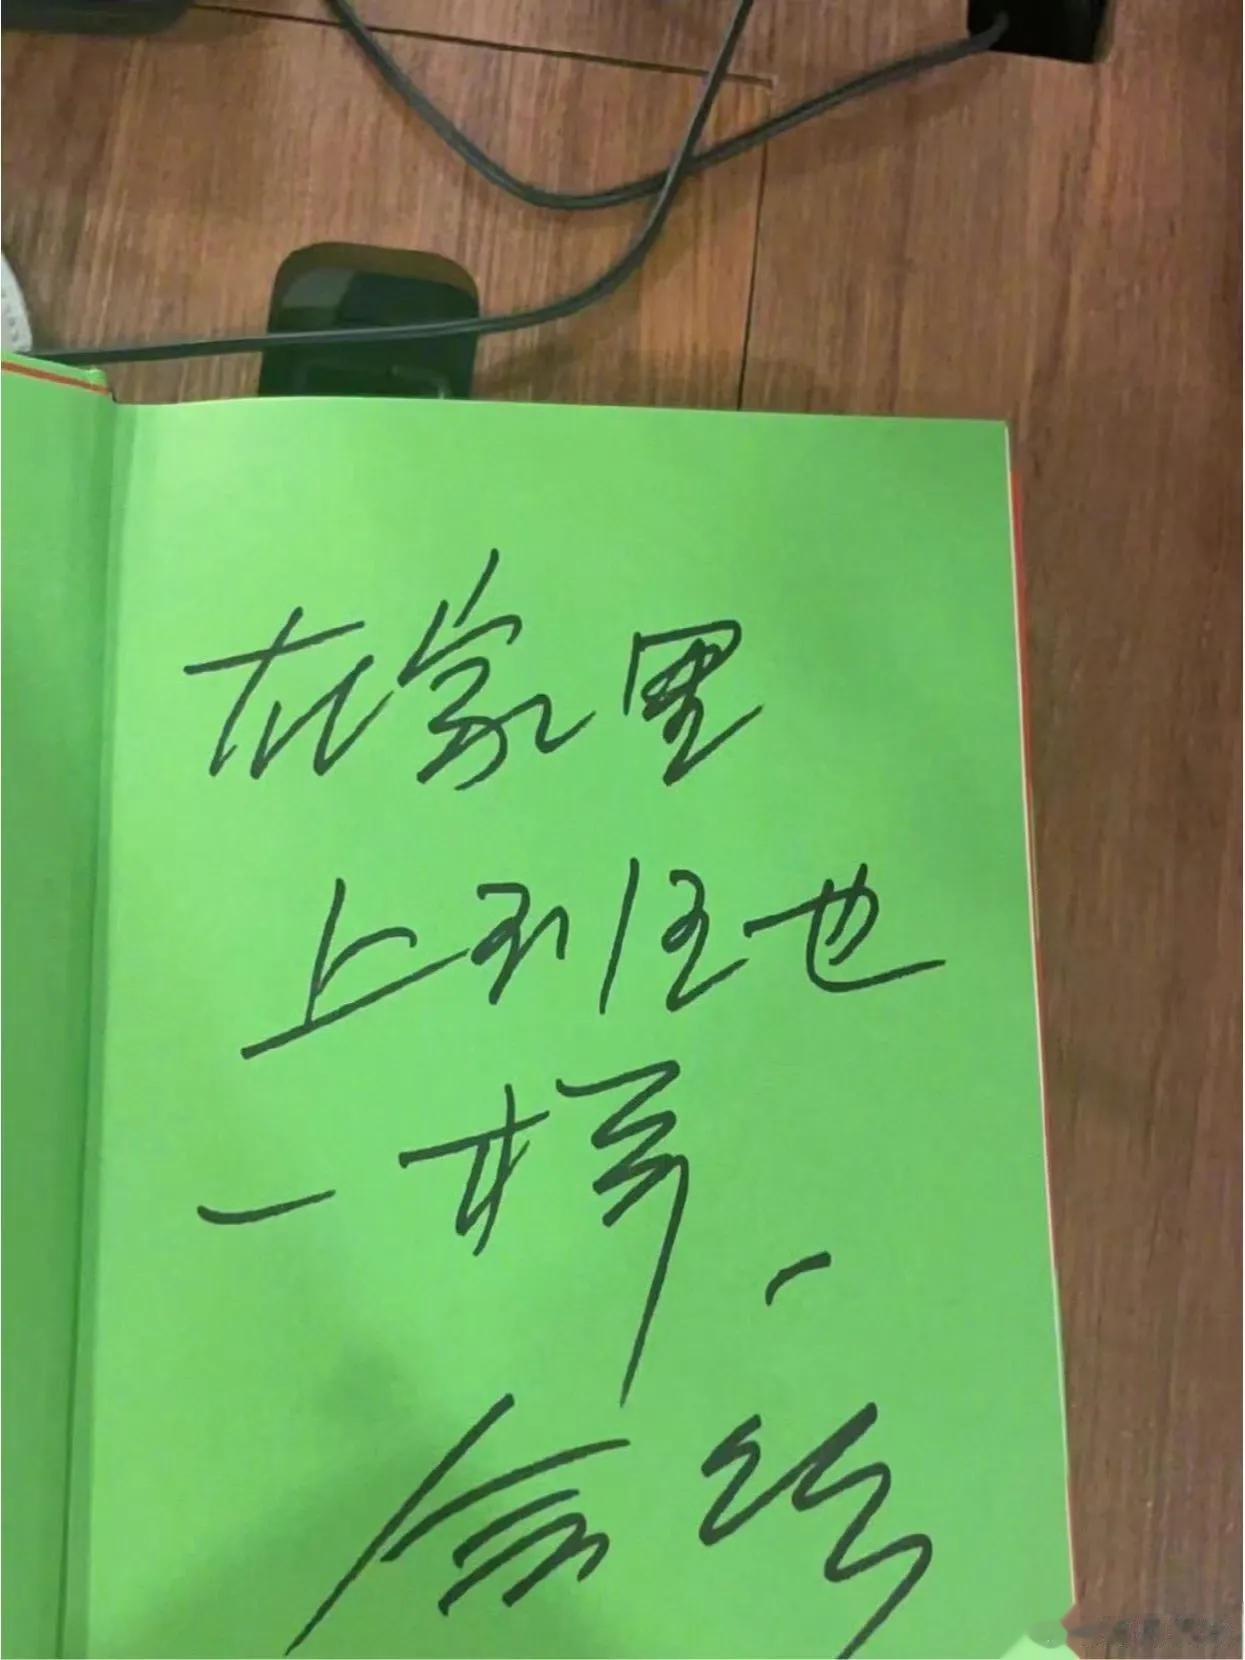 在家里
上班住也
一样.
余华